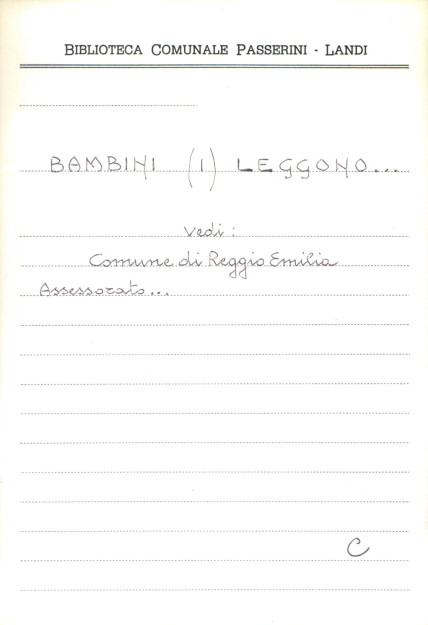 BIBLIOTECA COMUNALE PASSERINI - LANDI
BAMBINI (I) LEGGONO...
Vedi:
Comune di Reggio Emilia
Assessorato...
C